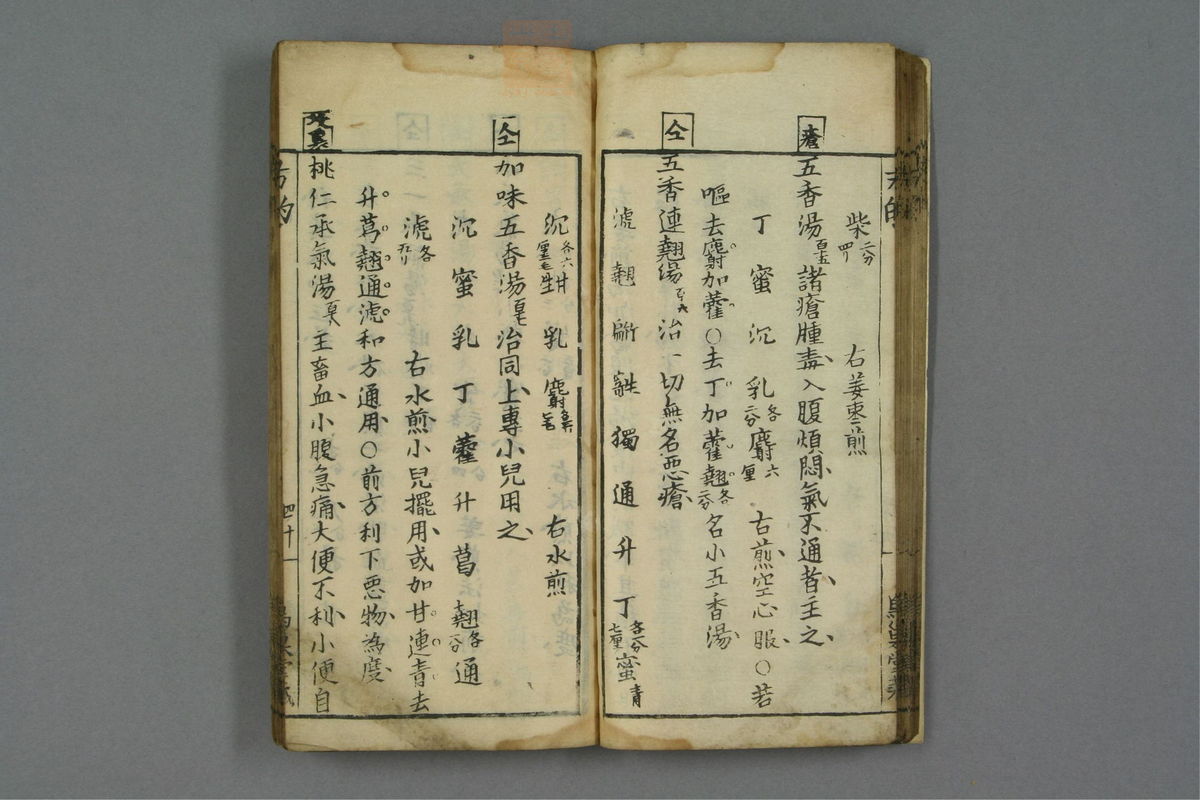 柴 二分 右姜枣煎
瘡 五香湯 諸瘡腫毒入腹煩悶氣不通者主之
丁 蜜 沉 乳 各二分 麝 六厘 右煎空心服〇若
嘔去麝加藿〇去丁加藿翹各二分名小五香湯
仝 五香連翹湯 治一切無名悪瘡
滤 翹 獨 通 升 丁 各一分七厘 蜜 青
沉 各六厘 乳 麝 右水煎
仝 加味五香湯 治同上專小兒用之
沉 蜜 乳 丁 藿 升 葛 翹 各二分 通
滤 各 右水煎小兒擺用或加甘連青去
升葛翹通滤和方通用〇前方利下悪物為度
桃仁承氣湯 主畜血小腹急痛大便不利小便自
方的
四十